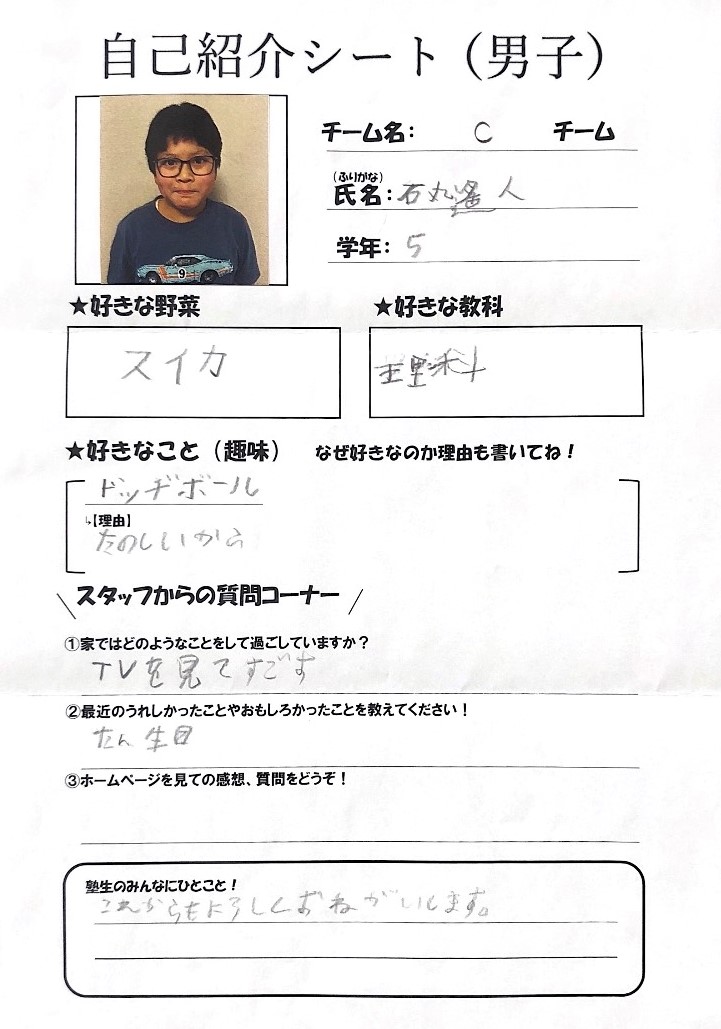 自己紹介シート（男子）
チーム名： C チーム
（ふりがな）
氏名：石丸遙人
学年：5
9
★好きな野菜 ★好きな教科
スイカ 理科
★好きなこと（趣味） なぜ好きなのか理由も書いてね！
ドッヂボール
↳【理由】
たのしいから
＼スタッフからの質問コーナー／
①家ではどのようなことをして過ごしていますか？
TVを見てすごす
②最近のうれしかったことやおもしろかったことを教えてください！
たん生日
③ホームページを見ての感想、質問をどうぞ！
塾生のみんなにひとこと！
これからもよろしくおねがいします。